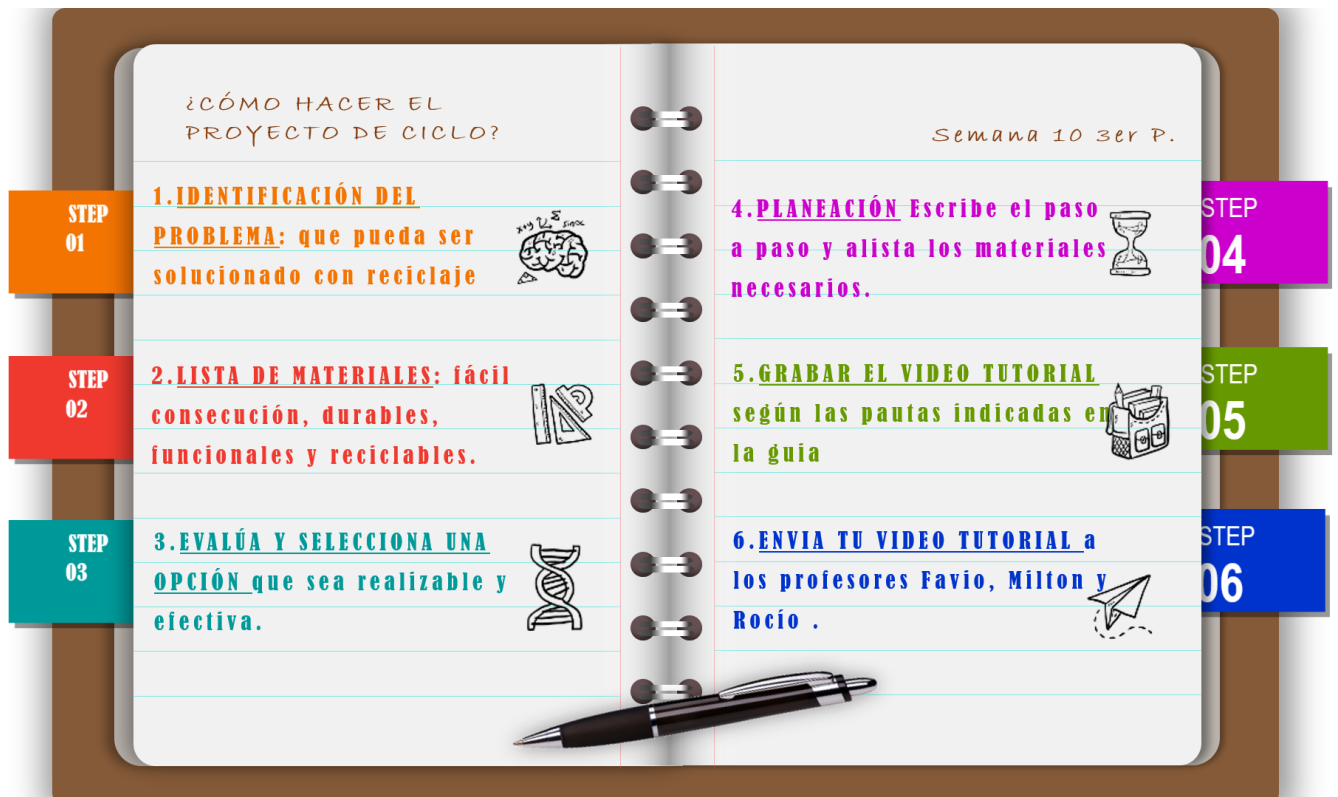 ¿CÓMO HACER EL
PROYECTO DE CICLO?
STEP
01
1.IDENTIFICACIÓN DEL
PROBLEMA: que pueda ser
solucionado con reciclaje
STEP
02
2.LISTA DE MATERIALES: fácil
consecución, durables,
funcionales y reciclables.
STEP
03
3.EVALÚA Y SELECCIONA UNA
OPCIÓN que sea realizable y
efectiva.
Semana 10 3er P.
4.PLANEACIÓN Escribe el paso
a paso y alista los materiales
necesarios.
STEP
04
5.GRABAR EL VIDEO TUTORIAL
según las pautas indicadas en
la guia
STEP
05
6.ENVIA TU VIDEO TUTORIAL a
los profesores Favio, Milton y
Rocío .
STEP
06